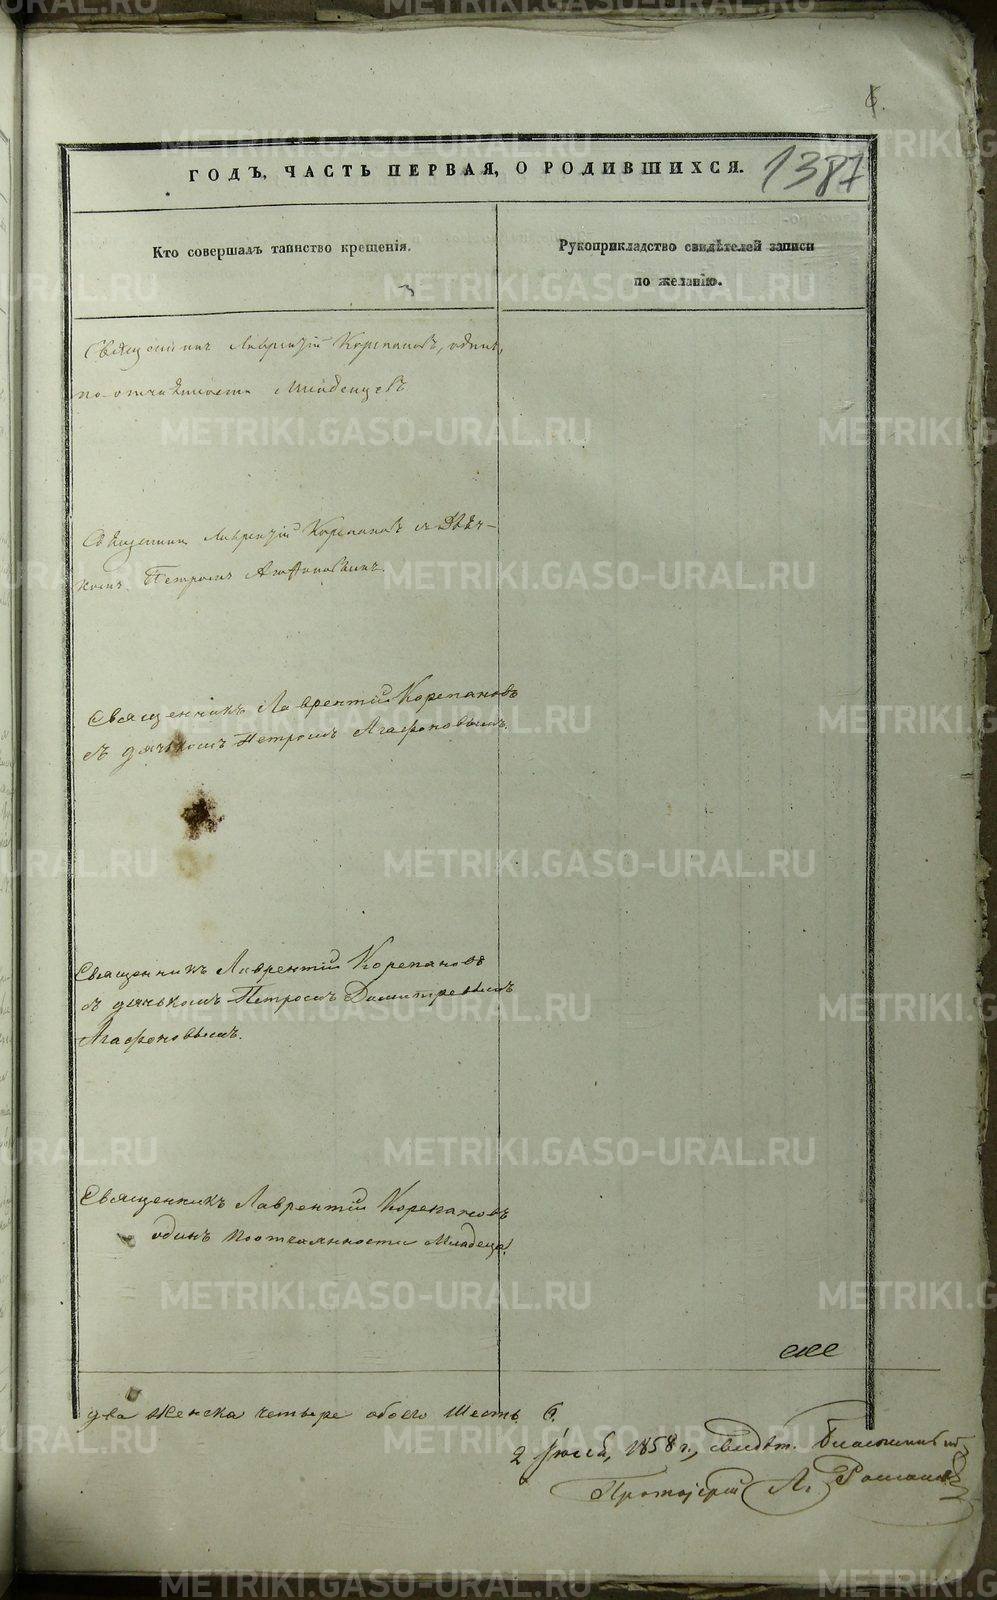 6.
ГОДЪ, ЧАСТЬ ПЕРВАЯ, О РОДИВШИХСЯ. 1387
Кто совершалъ таинство крещенія.
Рукоприкладство свидѣтелей записи
по желанію.
Священникъ Лаврентій Корепановъ, одинъ,
по отчаянности младенцевъ
Священникъ Лаврентій Корепановъ съ Дьяч-
комъ Петромъ Агафоновымъ.
Священникъ Лаврентій Корепановъ
съ дьячкомъ Петромъ Агафоновымъ.
Священникъ Лаврентій Корепановъ
съ дьячкомъ Петромъ Димитревымъ
Агафоновымъ.
Священникъ Лаврентій Корепановъ
одинъ по отчаянности младенца.
два женска четыре обоего шесть 6.
2 Іюля, 1858 г., свидѣт. Благочинный
Протоіерей Л.
METRIKI.GASO-URAL.RU